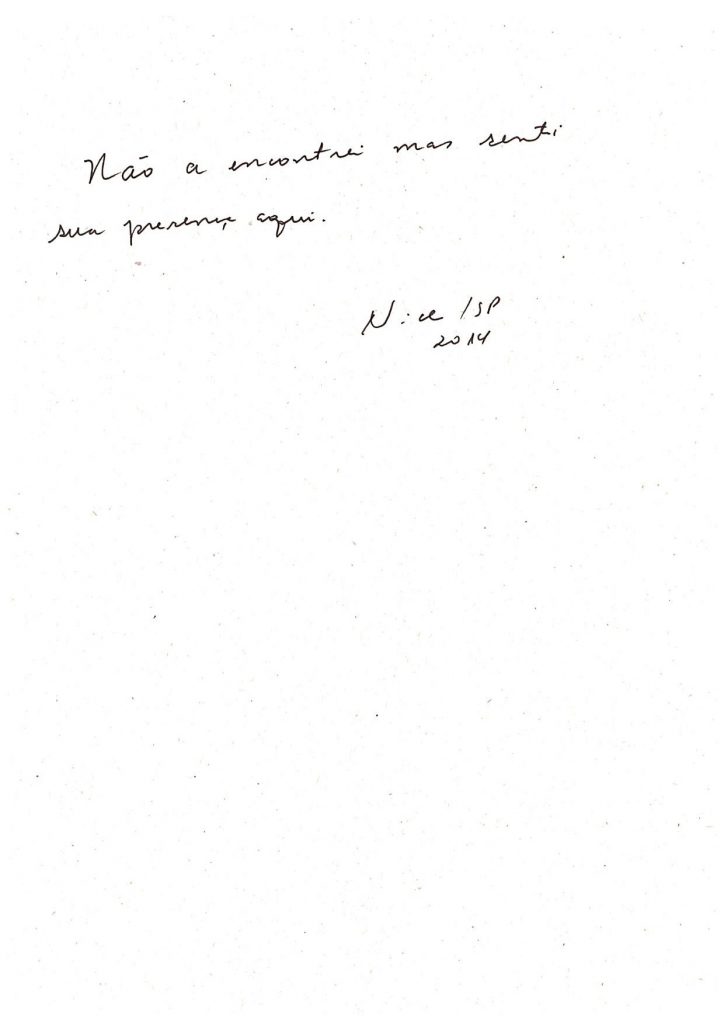 Não a encontrei mas senti
sua presença aqui.
Nice / SP
2014